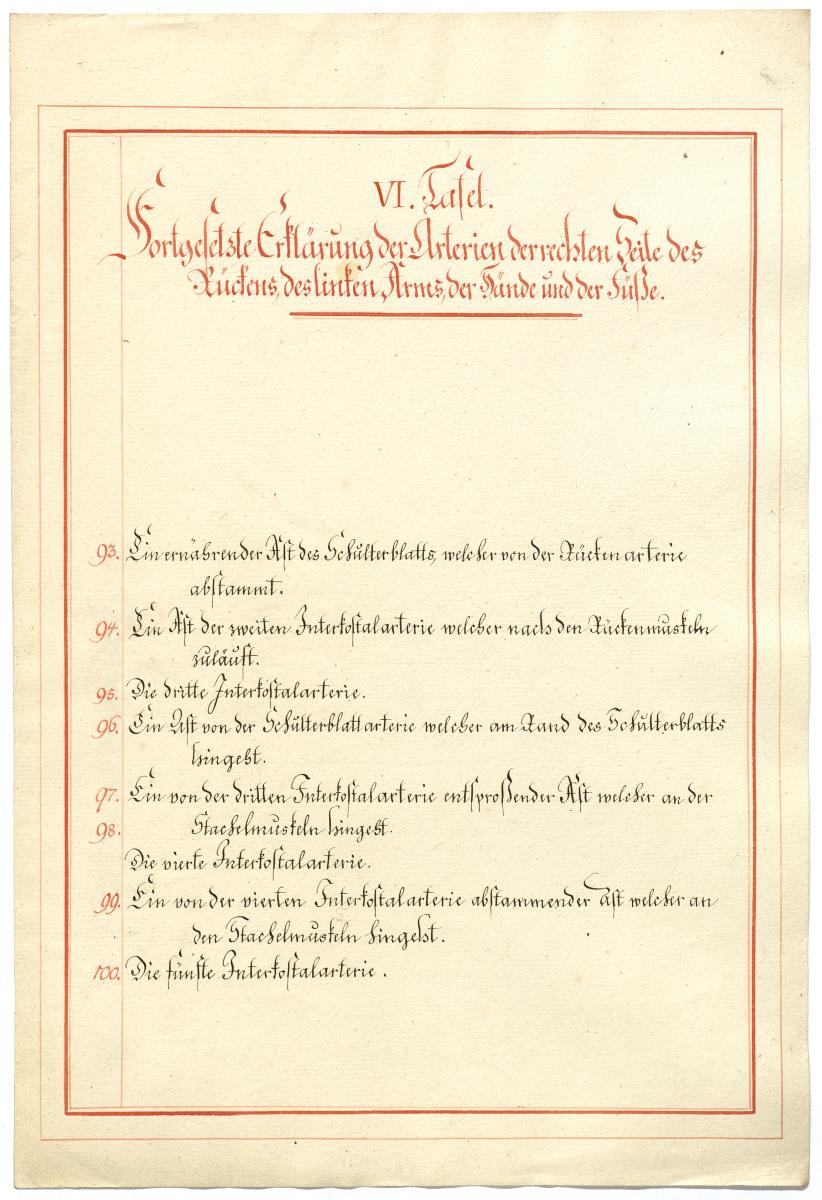 VI. Tafel.
Fortgesetzte Erklärung der Arterien der rechten Seite des
Rückens, des linken Arms, der Hände und der Füße.
93. Ein ernährender Ast des Schulterblatts, welcher von der Rückenarterie
abstammt.
94. Ein Ast der zweiten Interkostalarterie welcher nach den Rückenmuskeln
zuläuft.
95. Die dritte Interkostalarterie.
96. Ein Ast von der Schulterblattarterie welcher am Rand des Schulterblatts
hingeht.
97. Ein von der dritten Interkostalarterie entsproßender Ast welcher an der
98. Stachelmuskeln hingeht.
Die vierte Interkostalarterie.
99. Ein von der vierten Interkostalarterie abstammender Ast welcher an
den Stachelmuskeln hingeht.
100. Die fünfte Interkostalarterie.